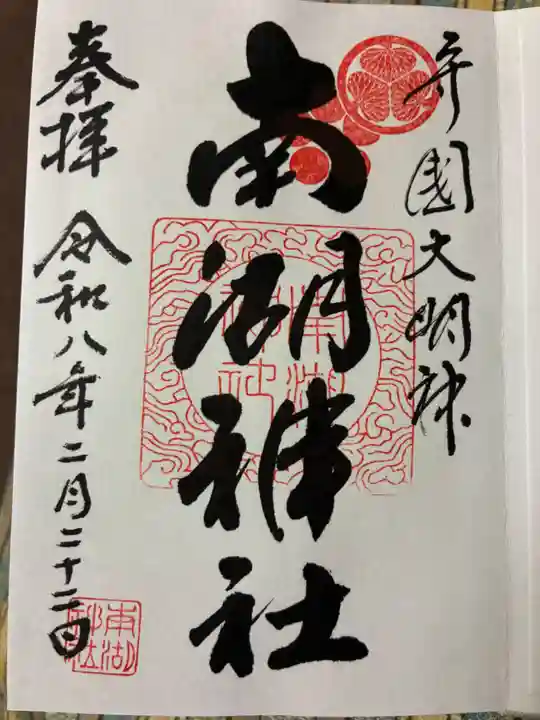 守國大明神
南湖神社
南湖神社
奉拝 令和八年二月二十二日
南湖神社